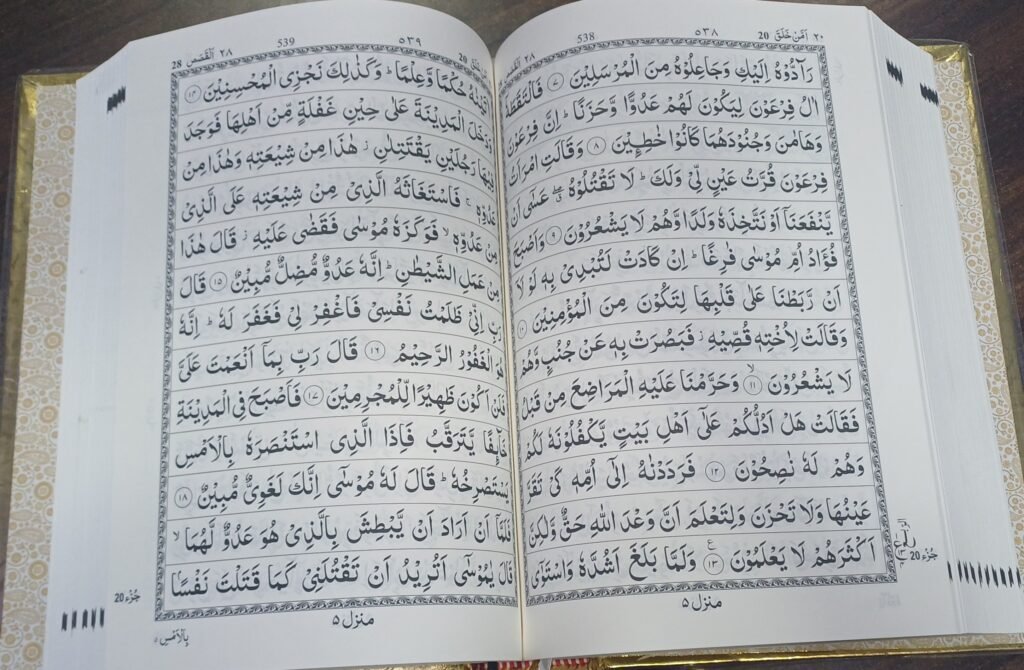 ٢٠ اَمَّنْ خَلَقَ 20
٥٣٨
538
٢٨
رَآدُّوْهُ اِلَيْكِ وَجَاعِلُوْهُ مِنَ الْمُرْسَلِيْنَ ۝٧ فَالْتَقَطَهٗٓ
اٰلُ فِرْعَوْنَ لِيَكُوْنَ لَهُمْ عَدُوًّا وَّحَزَنًا ؕ اِنَّ فِرْعَوْنَ
وَهَامٰنَ وَجُنُوْدَهُمَا كَانُوْا خٰطِـِٕيْنَ ۝٨ وَقَالَتِ امْرَاَتُ
فِرْعَوْنَ قُرَّتُ عَيْنٍ لِّيْ وَلَكَ ؕ لَا تَقْتُلُوْهُ ۖۗ عَسٰٓى اَنْ
يَّنْفَعَنَاۤ اَوْ نَتَّخِذَهٗ وَلَدًا وَّهُمْ لَا يَشْعُرُوْنَ ۝٩ وَاَصْبَحَ
فُؤَادُ اُمِّ مُوْسٰى فٰرِغًا ؕ اِنْ كَادَتْ لَتُبْدِيْ بِهٖ لَوْ لَاۤ
اَنْ رَّبَطْنَا عَلٰى قَلْبِهَا لِتَكُوْنَ مِنَ الْمُؤْمِنِيْنَ ۝١٠
وَقَالَتْ لِاُخْتِهٖ قُصِّيْهِ ؗ فَبَصُرَتْ بِهٖ عَنْ جُنُبٍ وَّهُمْ
لَا يَشْعُرُوْنَ ۙ۝١١ وَحَرَّمْنَا عَلَيْهِ الْمَرَاضِعَ مِنْ قَبْلُ
فَقَالَتْ هَلْ اَدُلُّكُمْ عَلٰٓى اَهْلِ بَيْتٍ يَّكْفُلُوْنَهٗ لَكُمْ
وَهُمْ لَهٗ نٰصِحُوْنَ ۝١٢ فَرَدَدْنٰهُ اِلٰٓى اُمِّهٖ كَيْ تَقَرَّ
عَيْنُهَا وَلَا تَحْزَنَ وَلِتَعْلَمَ اَنَّ وَعْدَ اللّٰهِ حَقٌّ وَّلٰكِنَّ
اَكْثَرَهُمْ لَا يَعْلَمُوْنَ ۝١٣ؒ وَلَمَّا بَلَغَ اَشُدَّهٗ وَاسْتَوٰٓى
جُزْء 20
منزل ٥
20
٥٣٩
539
٢٨ اَلْقَصَص 28
اٰتَيْنٰهُ حُكْمًا وَّعِلْمًا ؕ وَكَذٰلِكَ نَجْزِي الْمُحْسِنِيْنَ ۝١٤
وَدَخَلَ الْمَدِيْنَةَ عَلٰى حِيْنِ غَفْلَةٍ مِّنْ اَهْلِهَا فَوَجَدَ
فِيْهَا رَجُلَيْنِ يَقْتَتِلٰنِ ؗ هٰذَا مِنْ شِيْعَتِهٖ وَهٰذَا مِنْ
عَدُوِّهٖ ۚ فَاسْتَغَاثَهُ الَّذِيْ مِنْ شِيْعَتِهٖ عَلَى الَّذِيْ
مِنْ عَدُوِّهٖ ۙ فَوَكَزَهٗ مُوْسٰى فَقَضٰى عَلَيْهِ ؗ قَالَ هٰذَا
مِنْ عَمَلِ الشَّيْطٰنِ ؕ اِنَّهٗ عَدُوٌّ مُّضِلٌّ مُّبِيْنٌ ۝١٥ قَالَ
رَبِّ اِنِّيْ ظَلَمْتُ نَفْسِيْ فَاغْفِرْ لِيْ فَغَفَرَ لَهٗ ؕ اِنَّهٗ
هُوَ الْغَفُوْرُ الرَّحِيْمُ ۝١٦ قَالَ رَبِّ بِمَاۤ اَنْعَمْتَ عَلَيَّ
فَلَنْ اَكُوْنَ ظَهِيْرًا لِّلْمُجْرِمِيْنَ ۝١٧ فَاَصْبَحَ فِي الْمَدِيْنَةِ
خَآىِٕفًا يَّتَرَقَّبُ فَاِذَا الَّذِي اسْتَنْصَرَهٗ بِالْاَمْسِ
يَسْتَصْرِخُهٗ ؕ قَالَ لَهٗ مُوْسٰٓى اِنَّكَ لَغَوِيٌّ مُّبِيْنٌ ۝١٨
فَلَمَّاۤ اَنْ اَرَادَ اَنْ يَّبْطِشَ بِالَّذِيْ هُوَ عَدُوٌّ لَّهُمَا ۙ
قَالَ يٰمُوْسٰٓى اَتُرِيْدُ اَنْ تَقْتُلَنِيْ كَمَا قَتَلْتَ نَفْسًۢا
جُزْء 20
منزل ٥
بِالْاَمْسِ